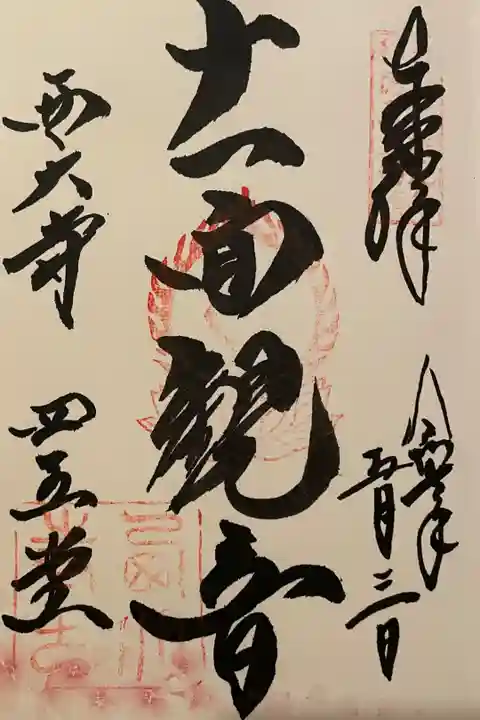 奉拝
令和 年
五月三日
十一面観音
西大寺 四王堂